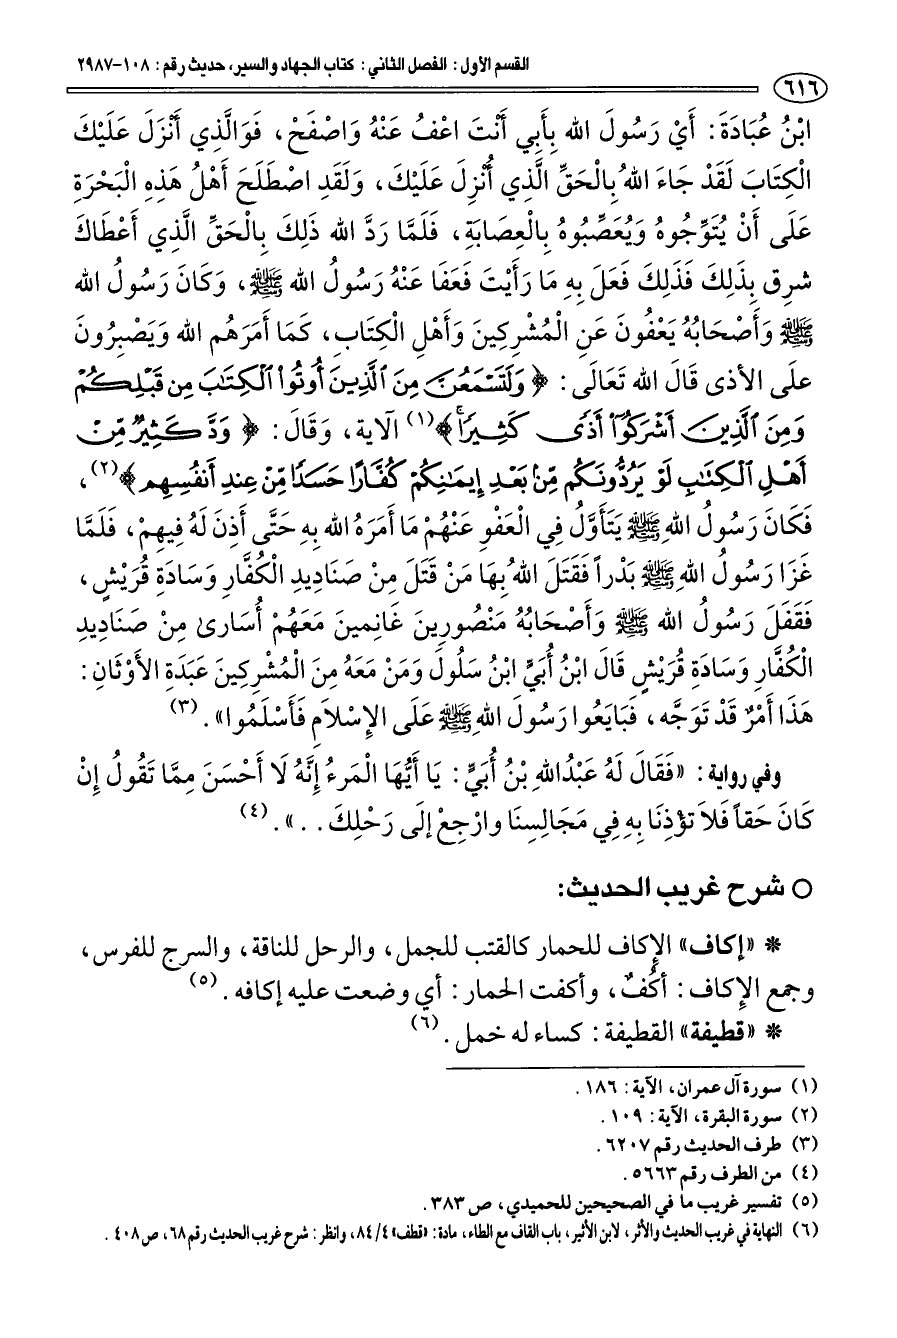 القسم الأول: الفصل الثاني: كتاب الجهاد والسير، حديث رقم: ١٠٨-٢٩٨٧
٦١٦
ابْنُ عُبَادَةَ: أَيْ رَسُولَ الله بِأَبِي أَنْتَ اعْفُ عَنْهُ وَاصْفَحْ، فَوَالَّذِي أَنْزَلَ عَلَيْكَ
الْكِتَابَ لَقَدْ جَاءَ اللهُ بِالْحَقِّ الَّذِي أُنْزِلَ عَلَيْكَ، وَلَقَدِ اصْطَلَحَ أَهْلُ هَذِهِ الْبَحْرَةِ
عَلَى أَنْ يُتَوِّجُوهُ وَيُعَصِّبُوهُ بِالْعِصَابَةِ، فَلَمَّا رَدَّ الله ذَلِكَ بِالْحَقِّ الَّذِي أَعْطَاكَ
شرِق بِذَلِكَ فَذَلِكَ فَعَلَ بِهِ مَا رَأَيْتَ فَعَفَا عَنْهُ رَسُولُ الله ﷺ، وَكَانَ رَسُولُ الله
ﷺ وَأَصْحَابُهُ يَعْفُونَ عَنِ الْمُشْرِكِينَ وَأَهْلِ الْكِتَابِ، كَمَا أَمَرَهُم الله وَيَصْبِرُونَ
علَى الأذى قَالَ الله تَعَالَى: ﴿وَلَتَسْمَعُنَّ مِنَ الَّذِينَ أُوتُوا الْكِتَابَ مِن قَبْلِكُمْ
وَمِنَ الَّذِينَ أَشْرَكُوا أَذًى كَثِيرًا﴾(١) الآية، وَقَالَ: ﴿وَدَّ كَثِيرٌ مِّنْ
أَهْلِ الْكِتَابِ لَوْ يَرُدُّونَكُم مِّن بَعْدِ إِيمَانِكُمْ كُفَّارًا حَسَدًا مِّنْ عِندِ أَنفُسِهِم﴾(٢)،
فَكَانَ رَسُولُ اللهِ ﷺ يَتَأَوَّلُ فِي الْعَفْوِ عَنْهُمْ مَا أَمَرَهُ الله بِهِ حَتَّى أَذِنَ لَهُ فِيهِمْ، فَلَمَّا
غَزَا رَسُولُ اللهِ ﷺ بَدْراً فَقَتَلَ اللهُ بِهَا مَنْ قَتَلَ مِنْ صَنَادِيدِ الْكُفَّارِ وَسَادَةِ قُرَيْشٍ،
فَقَفَلَ رَسُولُ الله ﷺ وَأَصْحَابُهُ مَنْصُورِينَ غَانِمِينَ مَعَهُمْ أُسَارىٰ مِنْ صَنَادِيدِ
الْكُفَّارِ وَسَادَةِ قُرَيْشٍ قَالَ ابْنُ أُبَيٍّ ابْنُ سَلُولَ وَمَنْ مَعَهُ مِنَ الْمُشْرِكِينَ عَبَدَةِ الأَوْثَانِ:
هَذَا أَمْرٌ قَدْ تَوَجَّه، فَبَايَعُوا رَسُولَ اللهِ ﷺ عَلَى الإِسْلاَمِ فَأَسْلَمُوا». (٣)
وفي رواية: «فَقَالَ لَهُ عَبْدُاللهِ بْنُ أُبَيٍّ: يَا أَيُّهَا الْمَرءُ إِنَّهُ لَا أَحْسَنَ مِمَّا تَقُولُ إِنْ
كَانَ حَقاً فَلاَ تؤْذِنَا بِهِ فِي مَجَالِسِنَا وارْجِعْ إلَى رَحْلِكَ . . .». (٤)
○ شرح غريب الحديث:
* «إكاف» الإكاف للحمار كالقتب للجمل، والرحل للناقة، والسرج للفرس،
وجمع الإكاف: أكُفٌ، وأكفت الحمار: أي وضعت عليه إكافه. (٥)
* «قطيفة» القطيفة: كساء له خمل. (٦)
(١) سورة آل عمران، الآية: ١٨٦.
(٢) سورة البقرة، الآية: ١٠٩.
(٣) طرف الحديث رقم ٦٢٠٧.
(٤) من الطرف رقم ٥٦٦٣.
(٥) تفسير غريب ما في الصحيحين للحميدي، ص ٣٨٣.
(٦) النهاية في غريب الحديث والأثر، لابن الأثير، باب القاف مع الطاء، مادة: «قطف» ٤/ ٨٤، وانظر: شرح غريب الحديث رقم ٦٨، ص ٤٠٨.